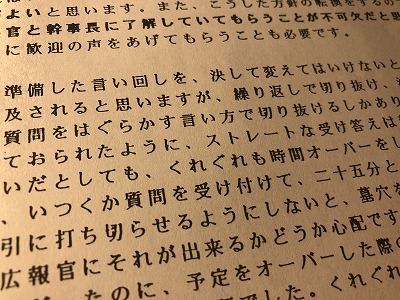 よいと思います。また、こうした方針の転換をするの
官と幹事長に了解していてもらうことが不可欠だと思
に歓迎の声をあげてもらうことも必要です。
準備した言い回しを、決して変えてはいけないと
及されると思いますが、繰り返しで切り抜け、
質問をはぐらかす言い方で切り抜けるしかあり
ておられたように、ストレートな受け答えは
いだとしても、くれぐれも時間オーバーをし
、いつくか質問を受け付けて、二十五分と
引に打ち切らせるようにしないと、墓穴を
広報官にそれが出来るかどうか心配です
たのに、予定をオーバーした際の
でした。くれぐれ